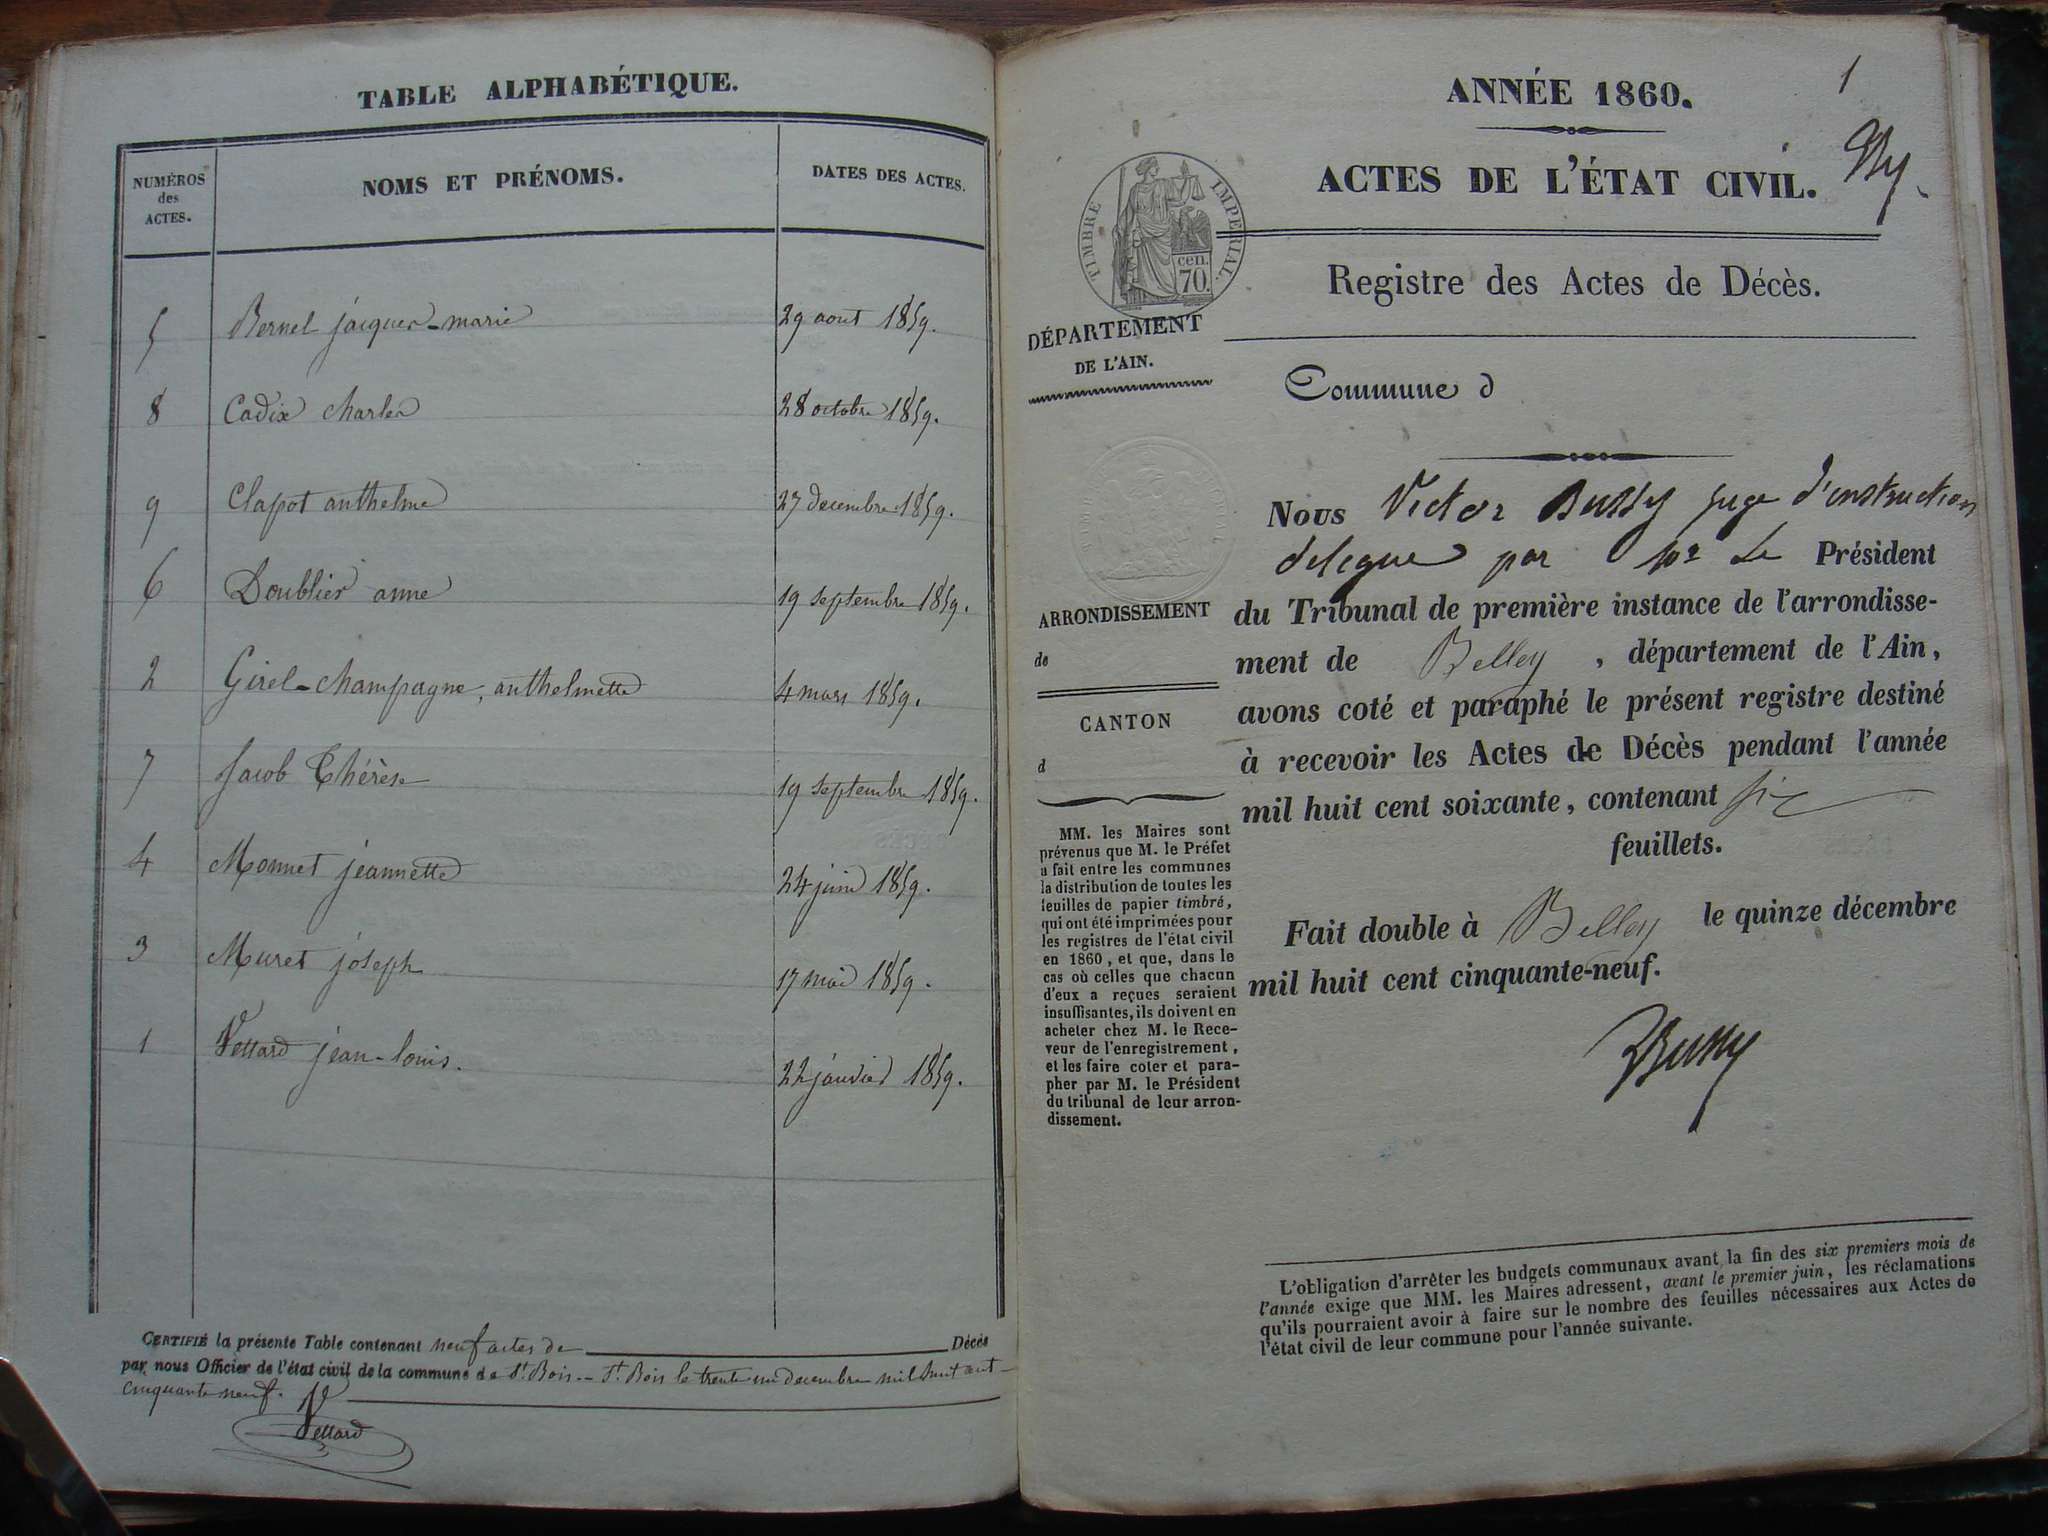 TABLE ALPHABÉTIQUE.
NUMÉROS des ACTES.
NOMS ET PRÉNOMS.
DATES DES ACTES.
5 Bernel jacques-marie 29 aout 1859.
8 Cadix charles 28 octobre 1859.
9 Clapot anthelme 27 decembre 1859.
6 Doublier anne 19 septembre 1859.
2 Girel-champagne, anthelmette 4 mars 1859.
7 Jacob Thérèse 19 septembre 1859.
4 Monnet jeannette 24 juin 1859.
3 Muret joseph 17 mai 1859.
1 Vettard jean-louis. 22 janvier 1859.
CERTIFIÉ la présente Table contenant neuf actes de Décès
par nous Officier de l'état civil de la commune de St. Bois.- St. Bois le trente un decembre mil huit cent
cinquante neuf.
Vettard
1
ANNÉE 1860.
ACTES DE L'ÉTAT CIVIL.
TIMBRE IMPERIAL.
cen.
70.
Registre des Actes de Décès.
DÉPARTEMENT
DE L'AIN.
Commune d
Nous Victor Bussy juge d'instruction
delegue par Mr Le Président
du Tribunal de première instance de l'arrondisse-
ment de Belley, département de l'Ain,
avons coté et paraphé le présent registre destiné
à recevoir les Actes de Décès pendant l'année
mil huit cent soixante, contenant six
feuillets.
Fait double à Belley le quinze décembre
mil huit cent cinquante-neuf.
VBussy
ARRONDISSEMENT
de
CANTON
d
MM. les Maires sont
prévenus que M. le Préfet
a fait entre les communes
la distribution de toutes les
feuilles de papier timbré,
qui ont été imprimées pour
les registres de l'état civil
en 1860, et que, dans le
cas où celles que chacun
d'eux a reçues seraient
insuffisantes, ils doivent en
acheter chez M. le Rece-
veur de l'enregistrement,
et les faire coter et para-
pher par M. le Président
du tribunal de leur arron-
dissement.
L'obligation d'arrêter les budgets communaux avant la fin des six premiers mois de
l'année exige que MM. les Maires adressent, avant le premier juin, les réclamations
qu'ils pourraient avoir à faire sur le nombre des feuilles nécessaires aux Actes de
l'état civil de leur commune pour l'année suivante.